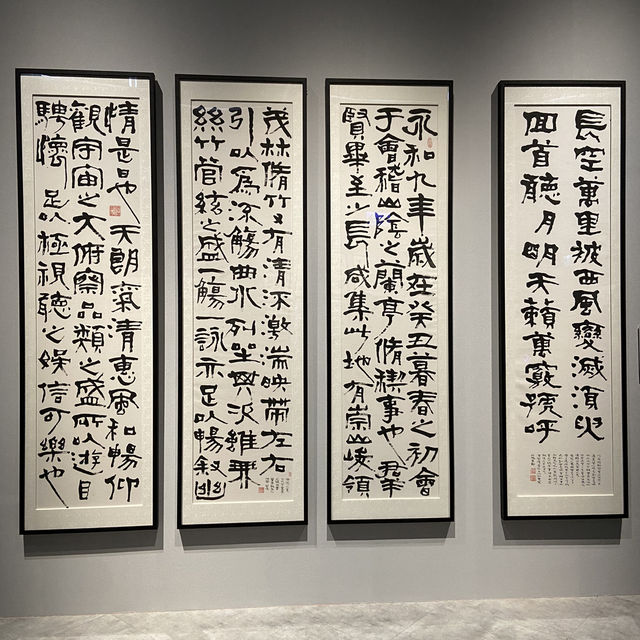 長空萬里被西風變滅須臾
回首聽月明天籟萬竅號呼
永和九年歲在癸丑暮春之初會
于會稽山陰之蘭亭脩禊事也羣
賢畢至少長咸集此地有崇山峻領
茂林脩竹又有清流激湍映帶左右
引以為流觴曲水列坐其次雖無
絲竹管絃之盛一觴一詠亦足以暢敘幽
情是日也天朗氣清惠風和暢仰
觀宇宙之大俯察品類之盛所以遊目
騁懷足以極視聽之娛信可樂也